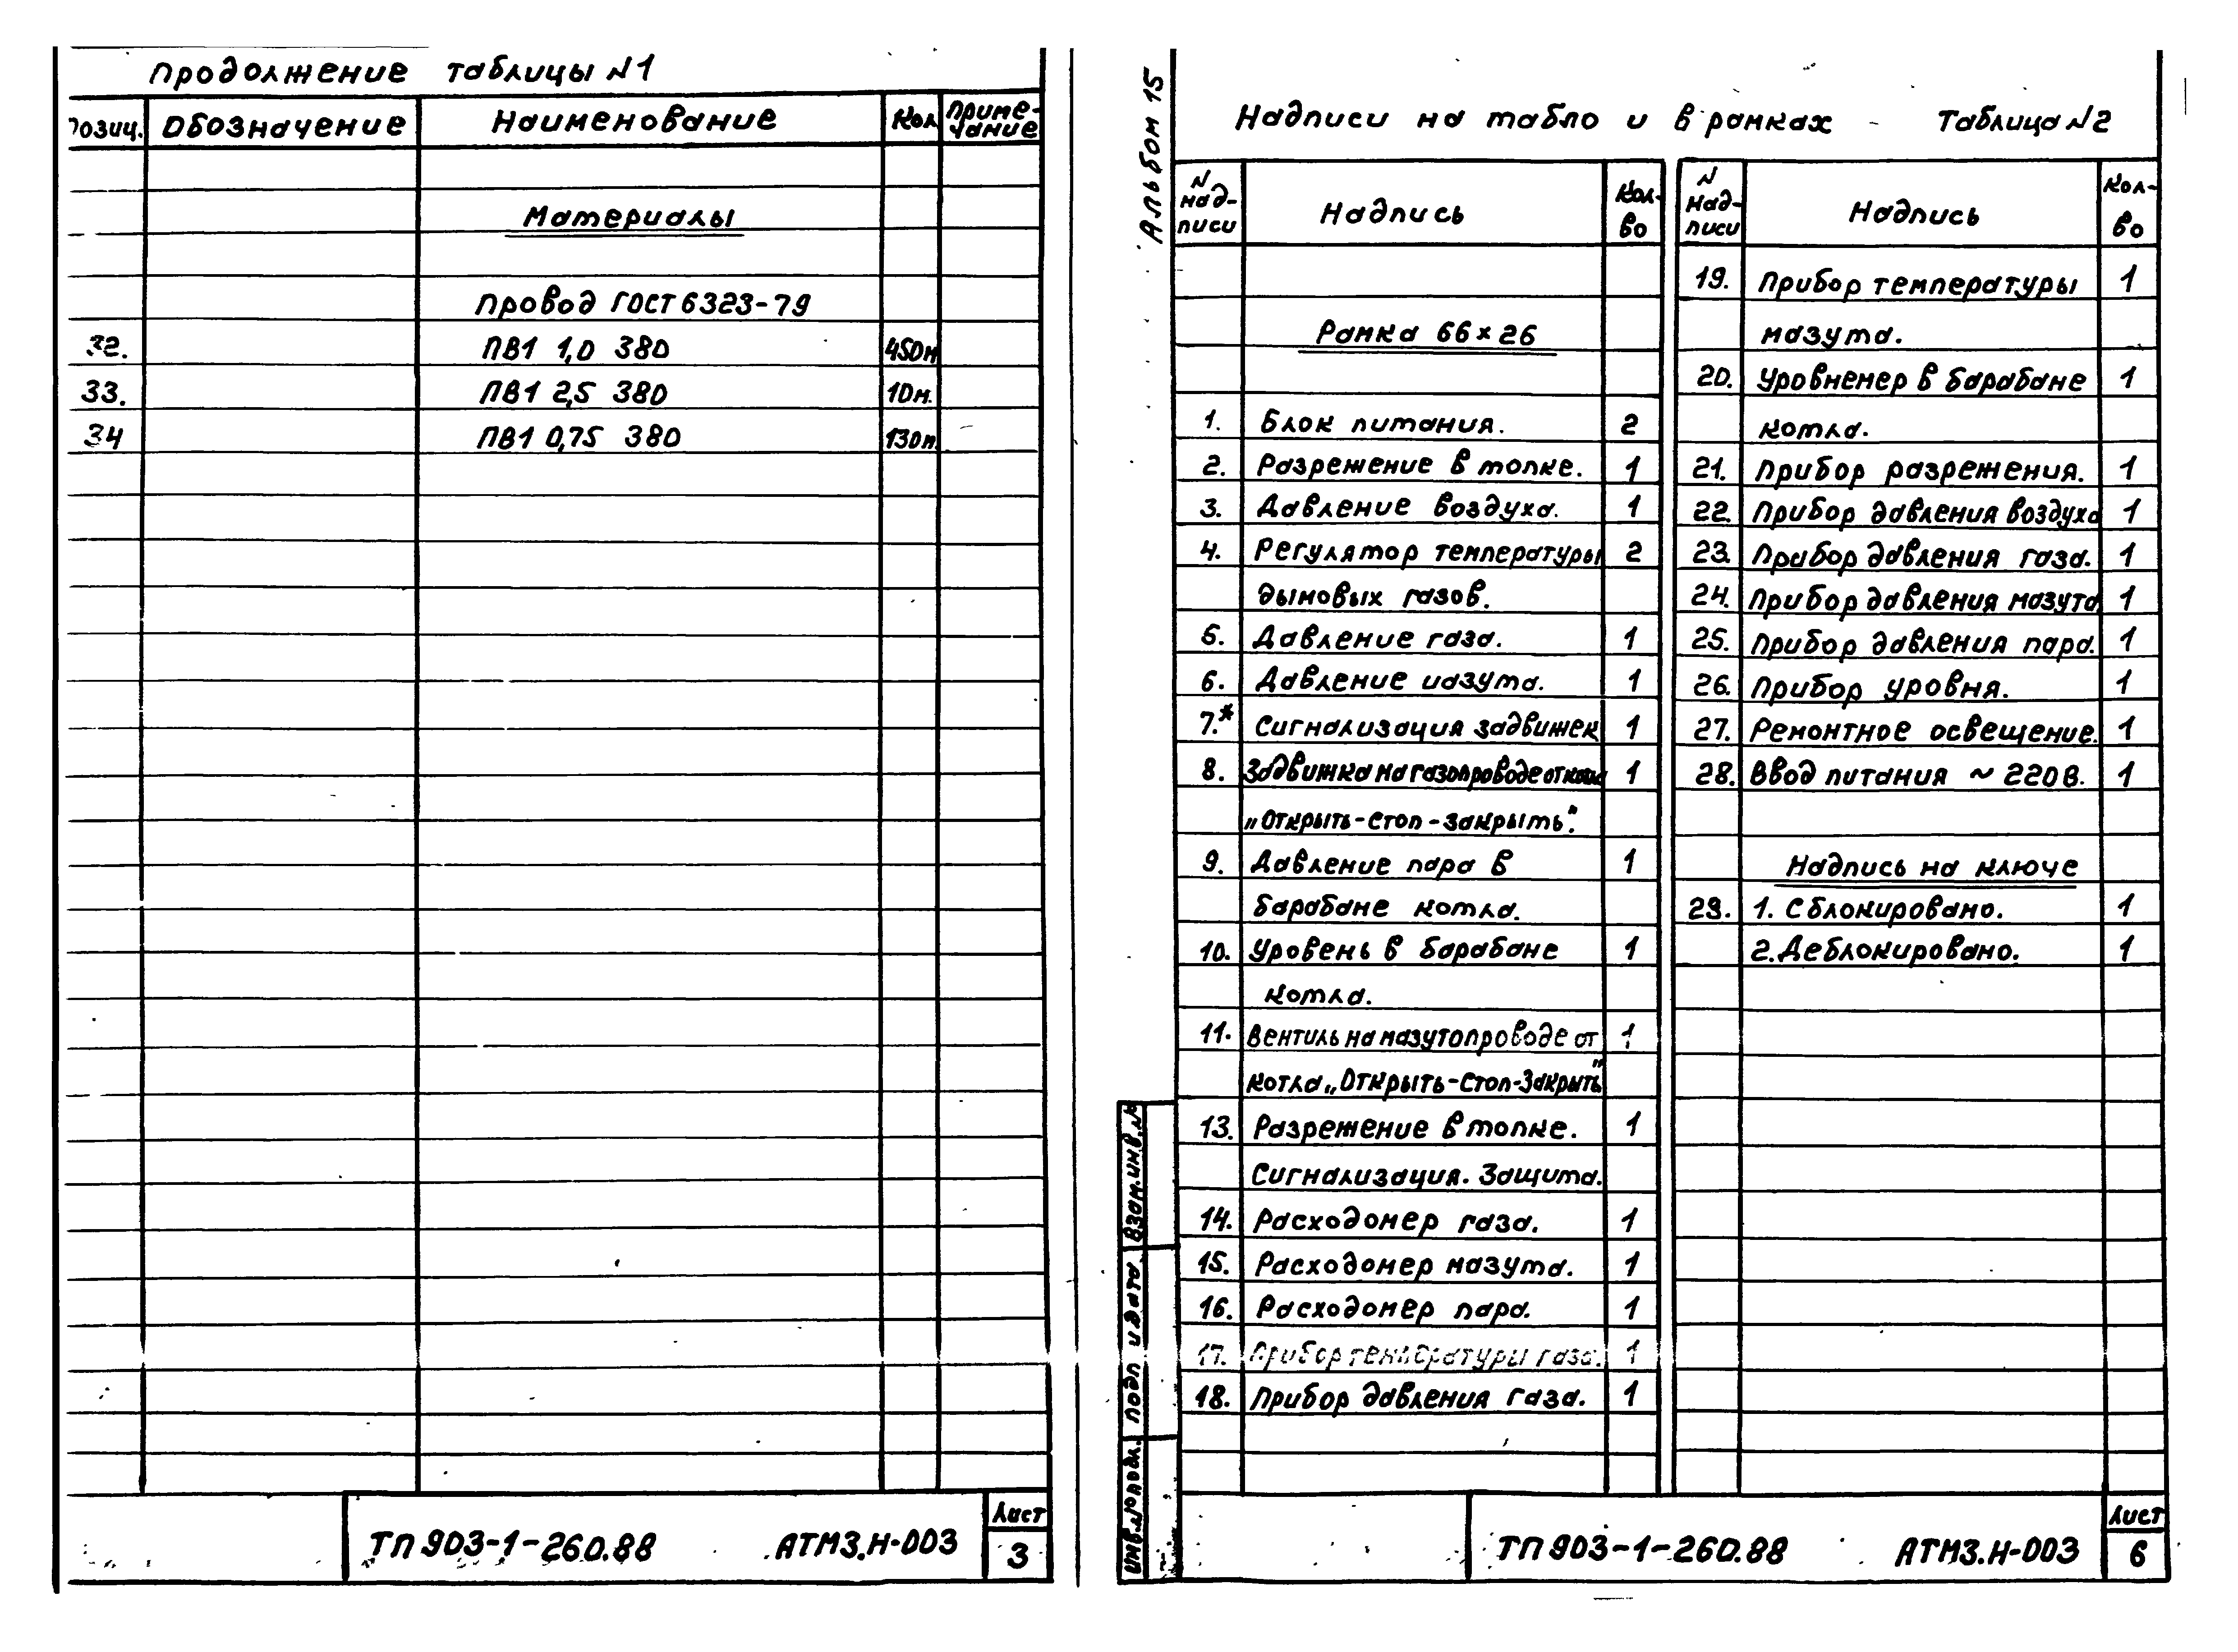 Продолжение таблицы №1
Позиц. Обозначение Наименование Кол Приме-
чание
Материалы
Провод ГОСТ 6323-79
32. ПВ1 1,0 380 450м
33. ПВ1 2,5 380 10м.
34 ПВ1 0,75 380 130м
ТП 903-1-260.88 АТМ3.Н-003
Лист
3
Альбом 15
Надписи на табло и в рамках Таблица №2
N
над-
писи
Надпись
Кол-
во
Рамка 66×26
1. Блок питания. 2
2. Разрежение в топке. 1
3. Давление воздуха. 1
4. Регулятор температуры 2
дымовых газов.
5. Давление газа. 1
6. Давление мазута. 1
7.* Сигнализация задвижек 1
8. Задвижка на газопроводе от котла 1
„Открыть-стоп-закрыть".
9. Давление пара в 1
барабане котла.
10. Уровень в барабане 1
котла.
11. Вентиль на мазутопроводе от 1
котла „Открыть-стоп-закрыть"
13. Разрежение в топке. 1
Сигнализация. Защита.
14. Расходомер газа. 1
15. Расходомер мазута. 1
16. Расходомер пара. 1
17. Прибор температуры газа. 1
18. Прибор давления газа. 1
N
над-
писи
Надпись
Кол-
во
19. Прибор температуры 1
мазута.
20. Уровнемер в барабане 1
котла.
21. Прибор разрежения. 1
22. Прибор давления воздуха 1
23. Прибор давления газа. 1
24. Прибор давления мазута 1
25. Прибор давления пара. 1
26. Прибор уровня. 1
27. Ремонтное освещение. 1
28. Ввод питания ~ 220В. 1
Надпись на ключе
29. 1. Сблокировано. 1
2. Деблокировано. 1
Инв.№подл. Подп и дата Взам.инв.№
ТП 903-1-260.88 АТМ3.Н-003
Лист
6